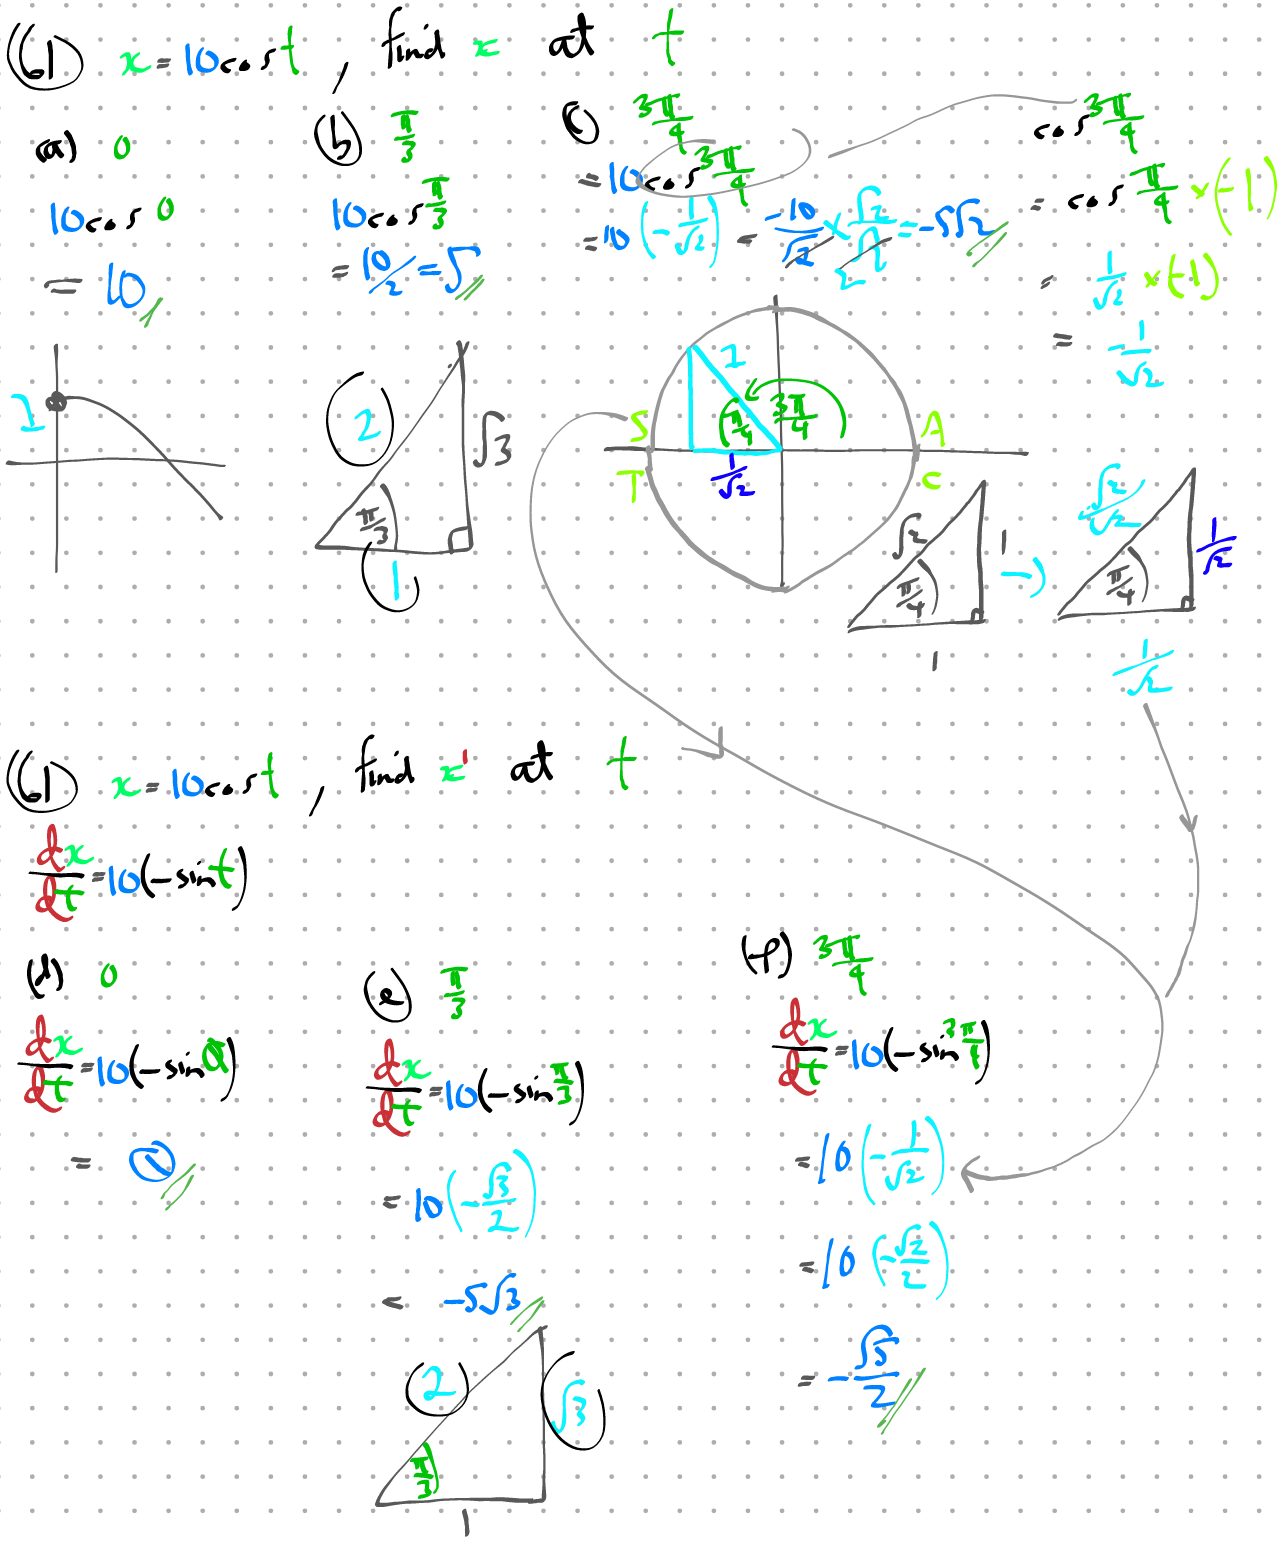 (61) x = 10cos t , find x at t
(a) 0
10cos 0
= 10
1
(b) π/3
10cos π/3
= 10/2 = 5
2
√3
π/3
1
(c) 3π/4
= 10cos 3π/4
= 10 (-1/√2) = -10/√2 × √2/√2 = -5√2
2
cos 3π/4
= cos π/4 × (-1)
= 1/√2 × (-1)
= -1/√2
S A
T C
1
π/4 3π/4
1/√2
√2 1
π/4
1
→
√2/√2 1/√2
π/4
1/√2
(61) x = 10cos t , find x' at t
dx/dt = 10(-sin t)
(d) 0
dx/dt = 10(-sin 0)
=
(e) π/3
dx/dt = 10(-sin π/3)
= 10 (-√3/2)
= -5√3
2
√3
π/3
1
(f) 3π/4
dx/dt = 10(-sin 3π/4)
= 10 (-1/√2)
= 10 (-√2/2)
= -√5/2